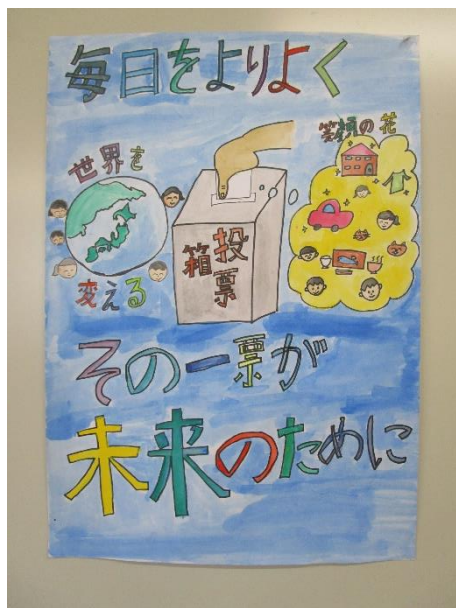 毎日をよりよく
世界を
変える
笑顔の花
投票
箱
その一票が
未来のために